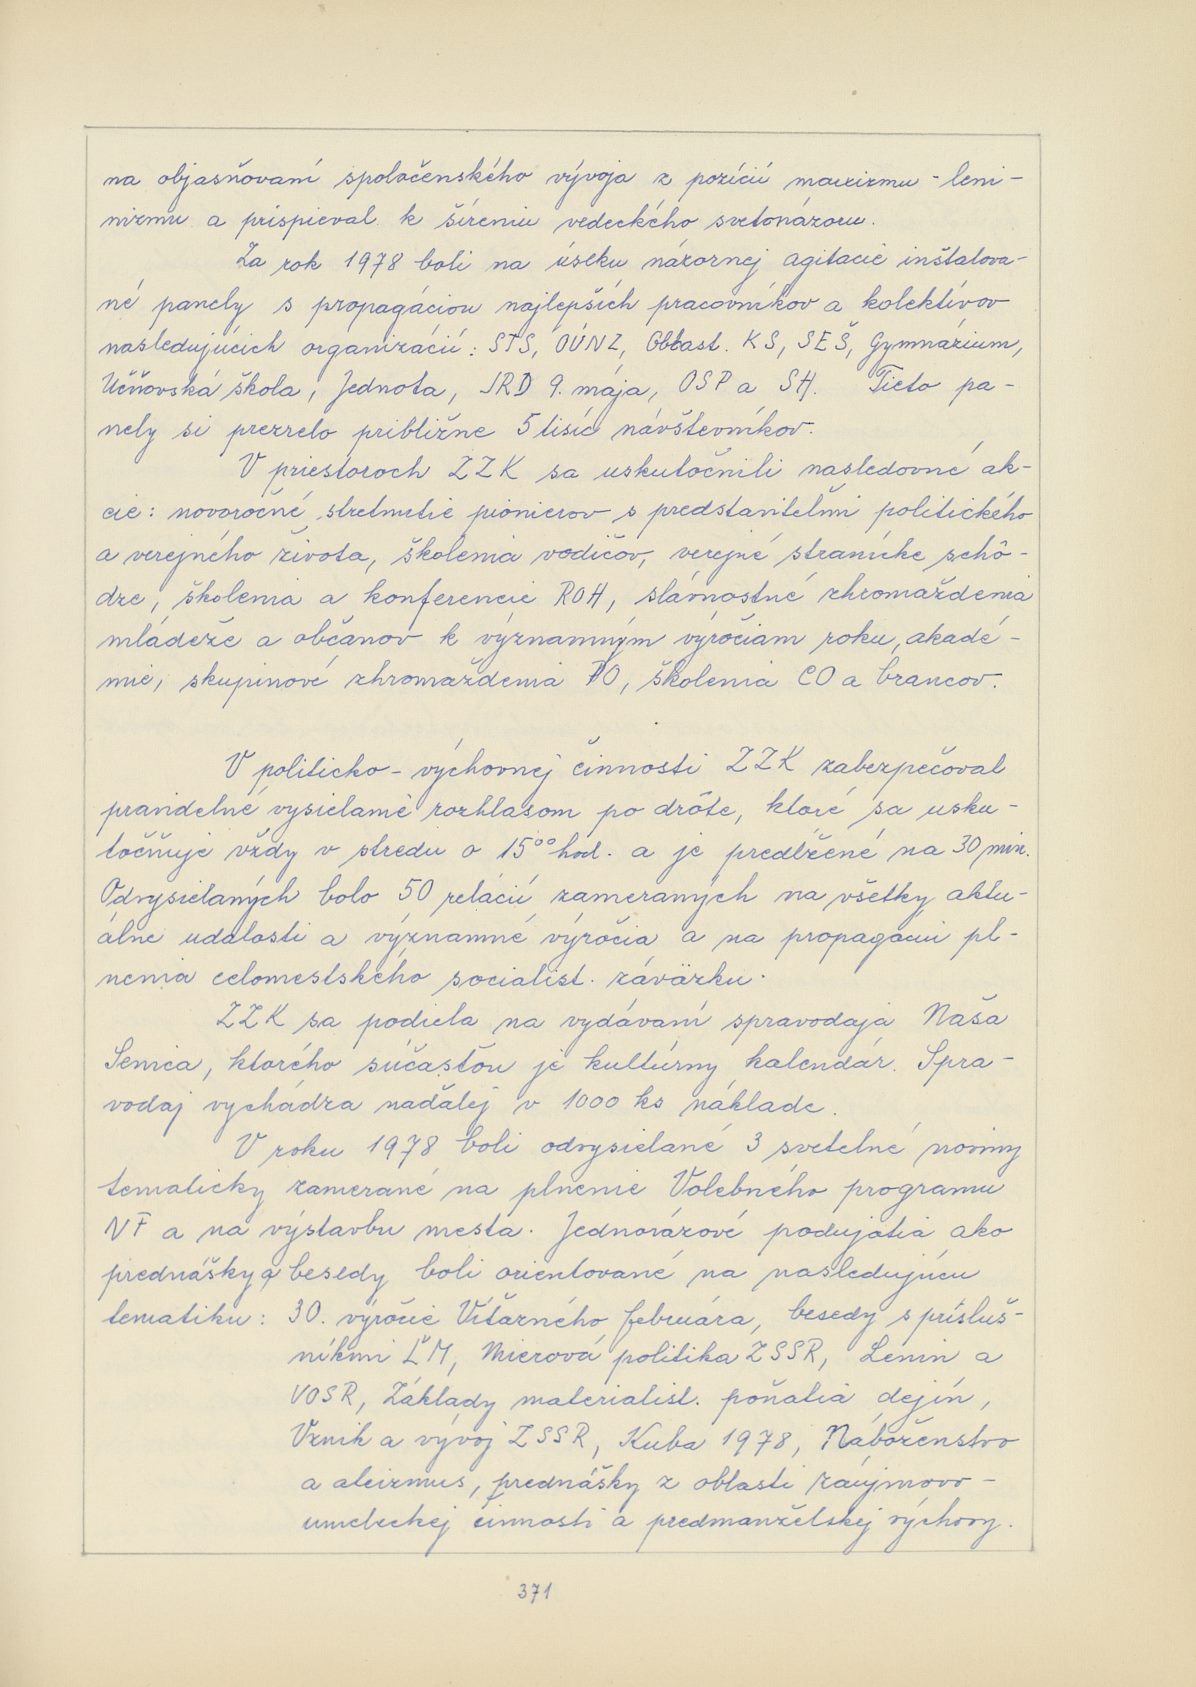 na objasňovaní spoločenského vývoja z pozícií marxizmu - leni-
nizmu a prispieval k šíreniu vedeckého svetonázoru.
Za rok 1978 boli na úseku názornej agitácie inštalova-
né panely s propagáciou najlepších pracovníkov a kolektívov
nasledujúcich organizácií: STS, OÚNZ, Obbast. KS, SEŠ, Gymnázium,
Učňovská škola, Jednota, JRD 9. mája, OSP a SH. Tieto pa-
nely si prezrelo približne 5 tisíc návštevníkov.
V priestoroch ZZK sa uskutočnili nasledovné ak-
cie: novoročné stretnutie pionierov s predstaviteľmi politického
a verejného života, školenia vodičov, verejné stranícke schô-
dze, školenia a konferencie ROH, slávnostné zhromaždenia
mládeže a občanov k významným výročiam roku, akadé-
mie, skupinové zhromaždenia PO, školenia CO a brancov.
V politicko - výchovnej činnosti ZZK zabezpečoval
pravidelné vysielanie rozhlasom po drôte, ktoré sa usku-
točňuje vždy v stredu o 15⁰⁰ hod. a je predĺžené na 30 min.
Odvysielaných bolo 50 relácií zameraných na všetky aktu-
álne udalosti a významné výročia a na propagáciu pl-
nenia celomestského socialist. záväzku.
ZZK sa podieľa na vydávaní spravodaja Naša
Senica, ktorého súčasťou je kultúrny kalendár. Spra-
vodaj vychádza naďalej v 1000 ks náklade.
V roku 1978 boli odvysielané 3 svetelné noviny
tematicky zamerané na plnenie Volebného programu
NF a na výstavbu mesta. Jednorázové podujatia ako
prednášky a besedy boli orientované na nasledujúcu
tematiku: 30. výročie Víťazného februára, besedy s prísluš-
níkmi ĽM, Mierová politika ZSSR, Lenin a
VOSR, Základy materialist. poňatia dejín,
Vznik a vývoj ZSSR, Kuba 1978, Náboženstvo
a ateizmus, prednášky z oblasti záujmovo-
umeleckej činnosti a predmanželskej výchovy.
371